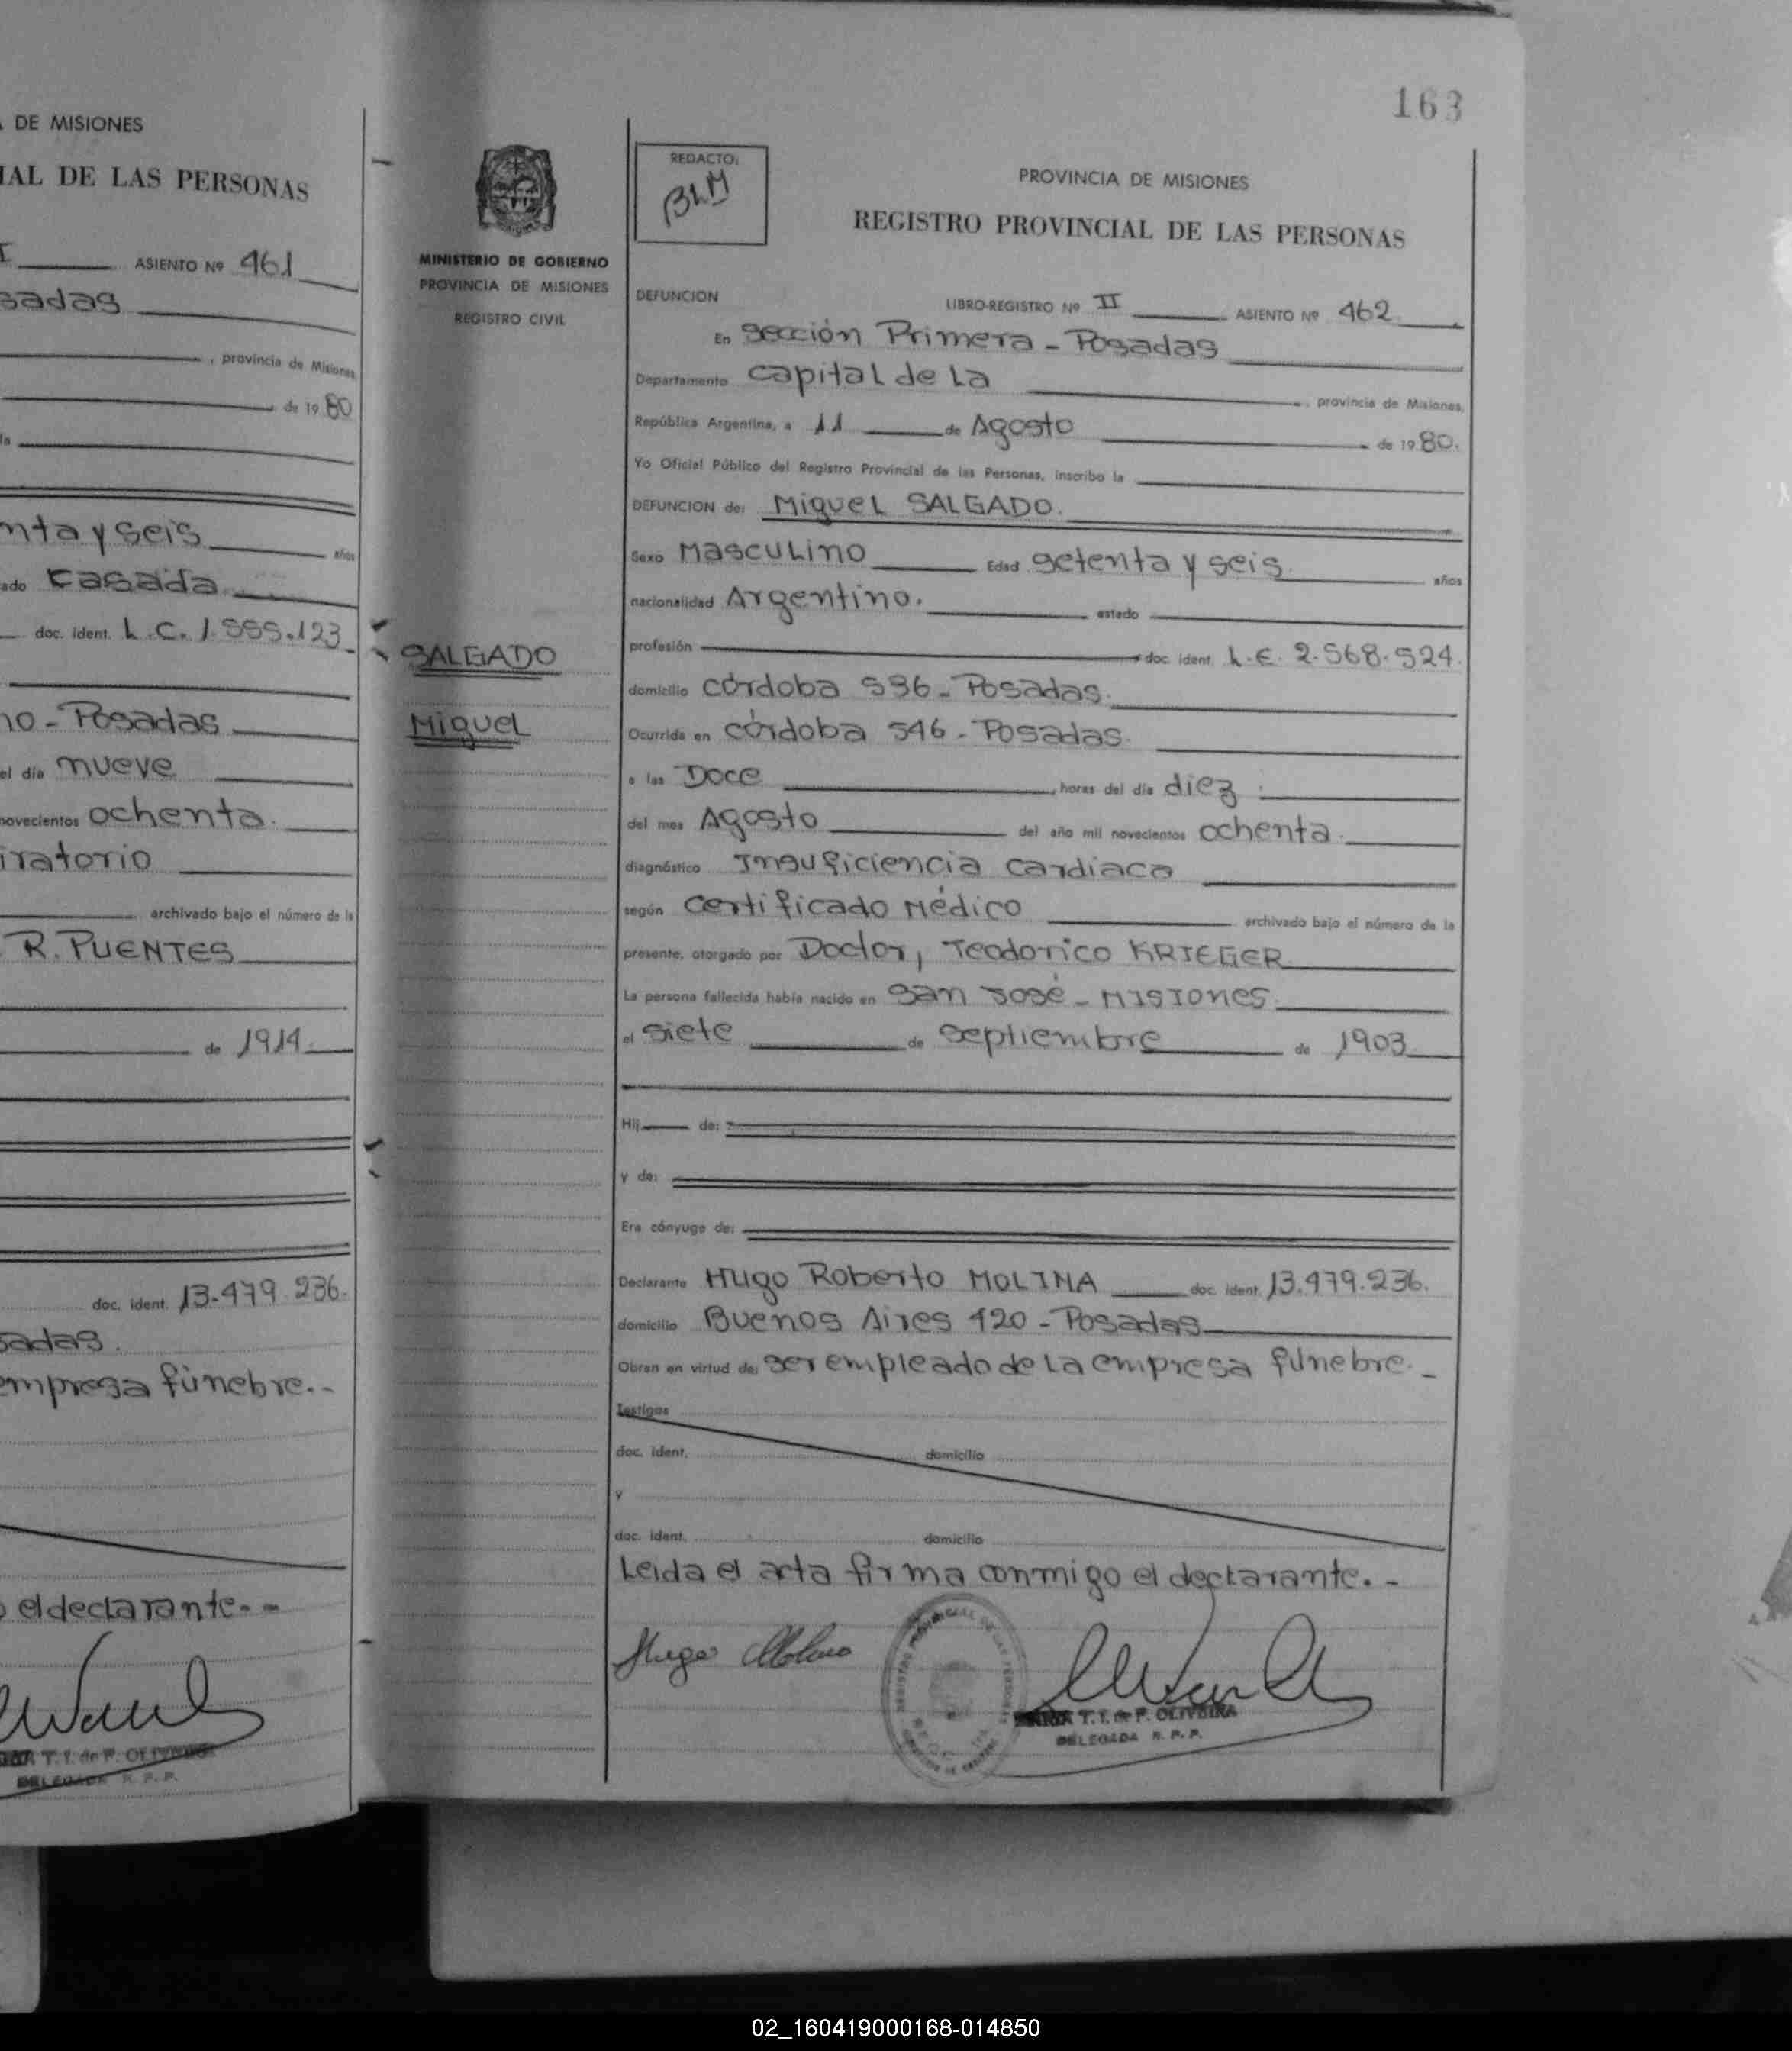 DE MISIONES
IAL DE LAS PERSONAS
I ASIENTO Nº 461
sadas
, provincia de Misiones,
de 19 80
la
nta y seis años
ado casada
doc. ident. L.C. 1.555.123
no - Posadas
el día nueve
novecientos ochenta.
iratorio
archivado bajo el número de la
R. PUENTES
de 1914.
doc. ident. 13.479.236.
sadas.
empresa fúnebre.-
el declarante.-
T. I. de P. OLIVEIRA
DELEGADA R. P. P.
163
MINISTERIO DE GOBIERNO
PROVINCIA DE MISIONES
REGISTRO CIVIL
SALGADO
Miguel
REDACTO:
BLM
PROVINCIA DE MISIONES
REGISTRO PROVINCIAL DE LAS PERSONAS
DEFUNCION LIBRO-REGISTRO Nº II ASIENTO Nº 462
En sección Primera - Posadas
Departamento capital de La , provincia de Misiones,
República Argentina, a 11 de Agosto de 19 80.
Yo Oficial Público del Registro Provincial de las Personas, inscribo la
DEFUNCION de: Miguel SALGADO.
Sexo Masculino Edad setenta y seis años
nacionalidad Argentino. estado
profesión doc. ident. L.E. 2.568.524.
domicilio córdoba 536 - Posadas.
Ocurrida en córdoba 546 - Posadas.
a las Doce , horas del día diez
del mes Agosto del año mil novecientos ochenta.
diagnóstico Insuficiencia cardíaca
según certificado Médico archivado bajo el número de la
presente, otorgado por Doctor, Teodorico KRIEGER
La persona fallecida había nacido en San José - Misiones.
el siete de septiembre de 1903
Hij de:
y de:
Era cónyuge de:
Declarante Hugo Roberto MOLINA doc. ident. 13.479.236.
domicilio Buenos Aires 420 - Posadas
Obran en virtud de: ser empleado de la empresa fúnebre.-
Testigos
doc. ident. domicilio
y
doc. ident. domicilio
Leida el acta firma conmigo el declarante.-
Hugo Molina
MARIA T. I. de P. OLIVEIRA
DELEGADA R. P. P.
02_160419000168-014850